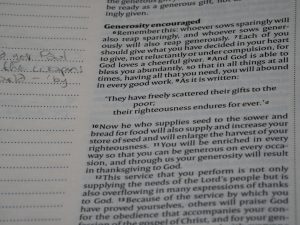 be ready as a generous gift, not
ingly given.
Generosity encouraged
6 Remember this: whoever sows sparingly will
also reap sparingly, and whoever sows gener-
ously will also reap generously. 7 Each of you
should give what you have decided in your heart
to give, not reluctantly or under compulsion, for
God loves a cheerful giver. 8 And God is able to
bless you abundantly, so that in all things at all
times, having all that you need, you will abound
in every good work. 9 As it is written:
'They have freely scattered their gifts to the
poor;
their righteousness endures for ever.'
10 Now he who supplies seed to the sower and
bread for food will also supply and increase your
store of seed and will enlarge the harvest of your
righteousness. 11 You will be enriched in every
way so that you can be generous on every occa-
sion, and through us your generosity will result
in thanksgiving to God.
12 This service that you perform is not only
supplying the needs of the Lord's people but is
also overflowing in many expressions of thanks
to God. 13 Because of the service by which you
have proved yourselves, others will praise God
for the obedience that accompanies your con-
fession of the gospel of Christ, and for your gen-